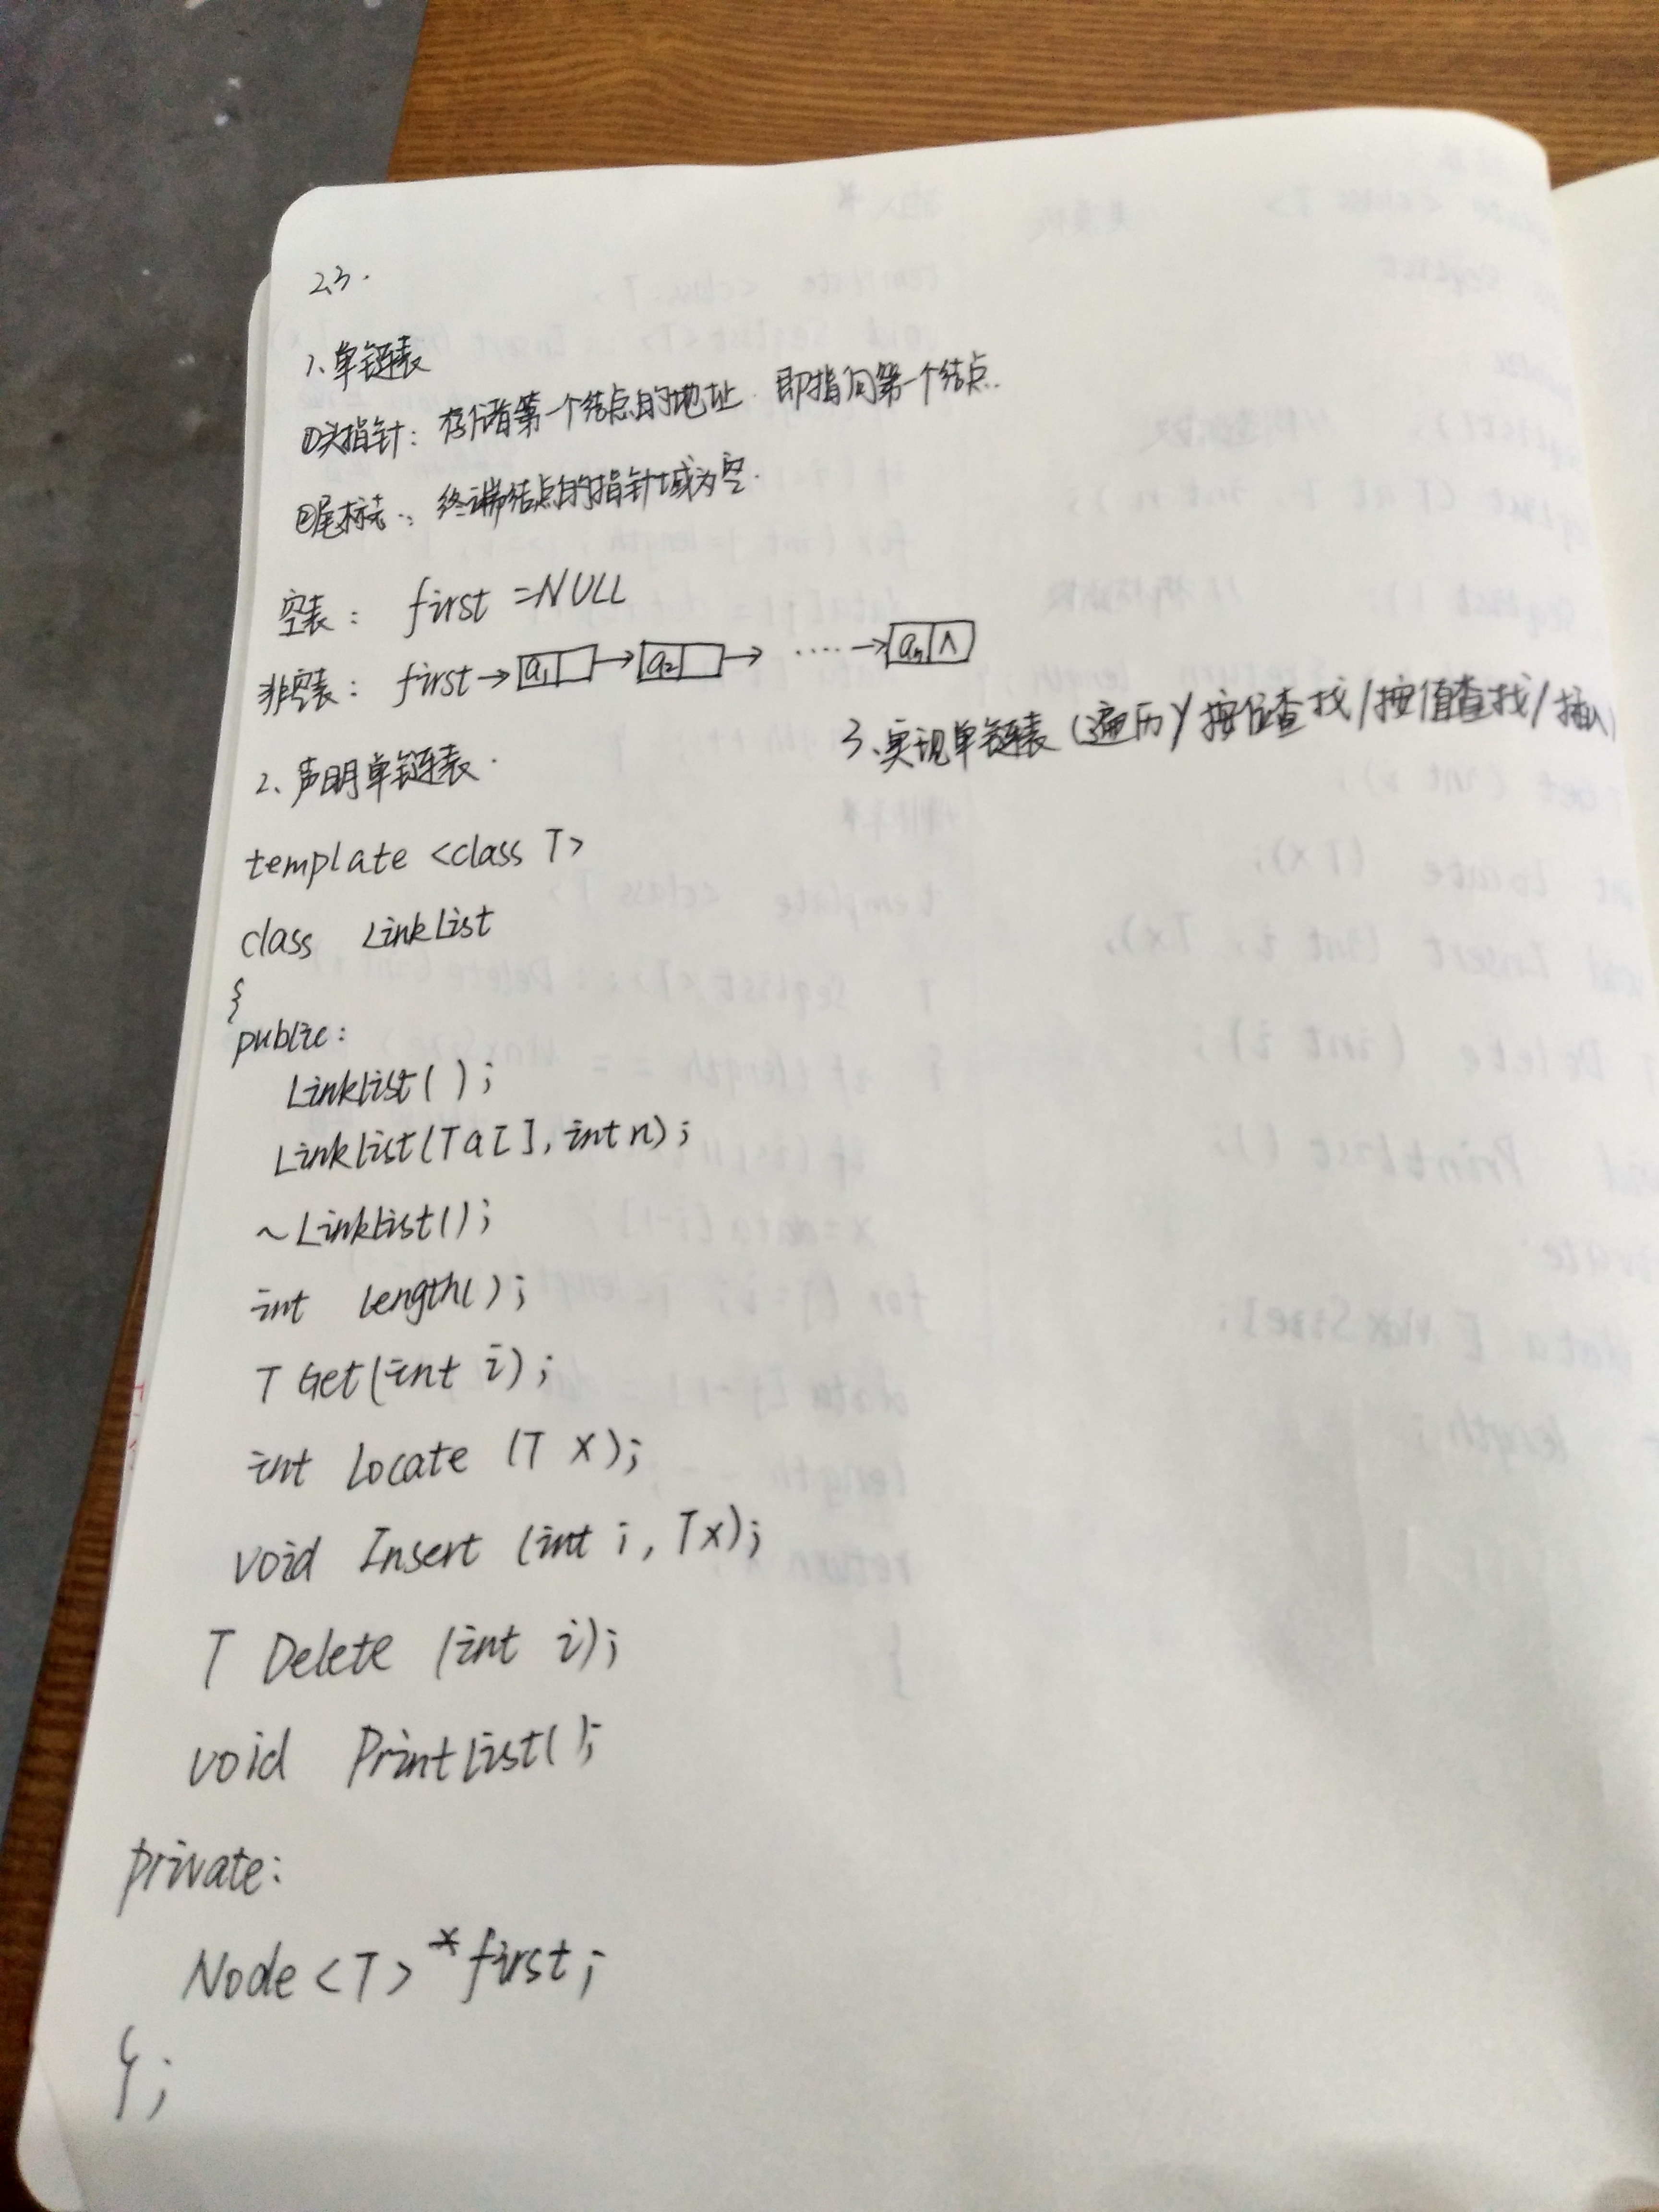 2.3.
1、单链表
①头指针：存储着第一个结点的地址 即指向第一个结点.
②尾标志：终端结点的指针域为空.
空表：first=NULL
非空表：first→a1→a2→……→an∧
2、声明单链表.
3、实现单链表(遍历)/按位查找/按值查找/插入
template <class T>
class LinkList
{
public:
LinkList( );
LinkList(T a[ ], int n);
~LinkList( );
int length( );
T Get(int i);
int Locate (T x);
void Insert (int i, T x);
T Delete (int i);
void PrintList( );
private:
Node<T> *first;
};